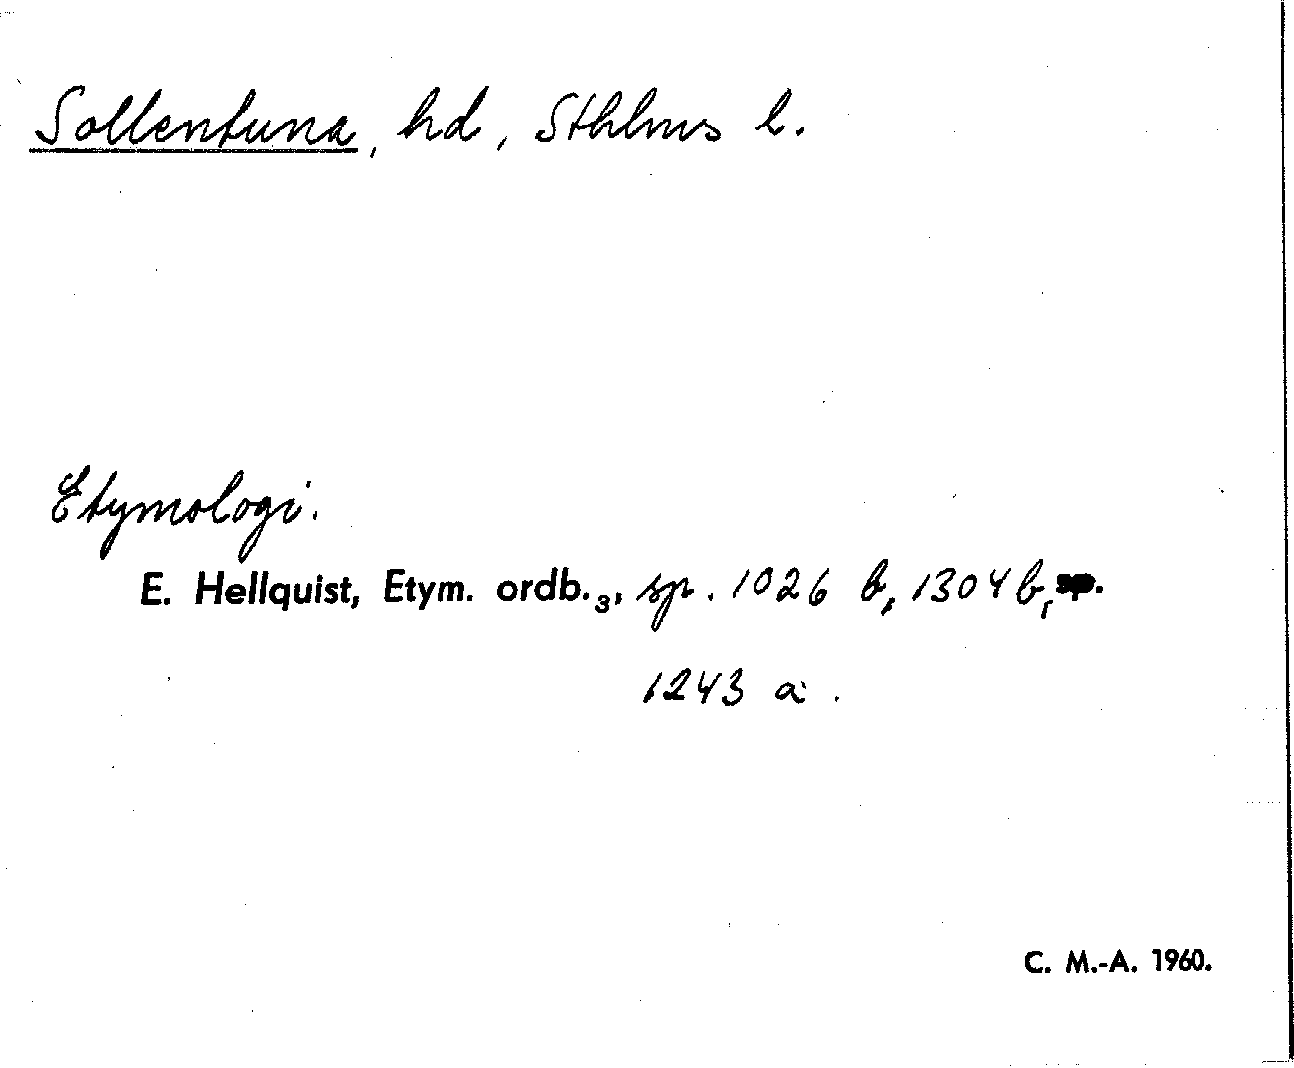 Sollentuna, hd, Sthlms l.
Etymologi.
E. Hellquist, Etym. ordb.₃, sp. 1026 b, 1304 b, sp.
1243 a.
C. M.-A. 1960.